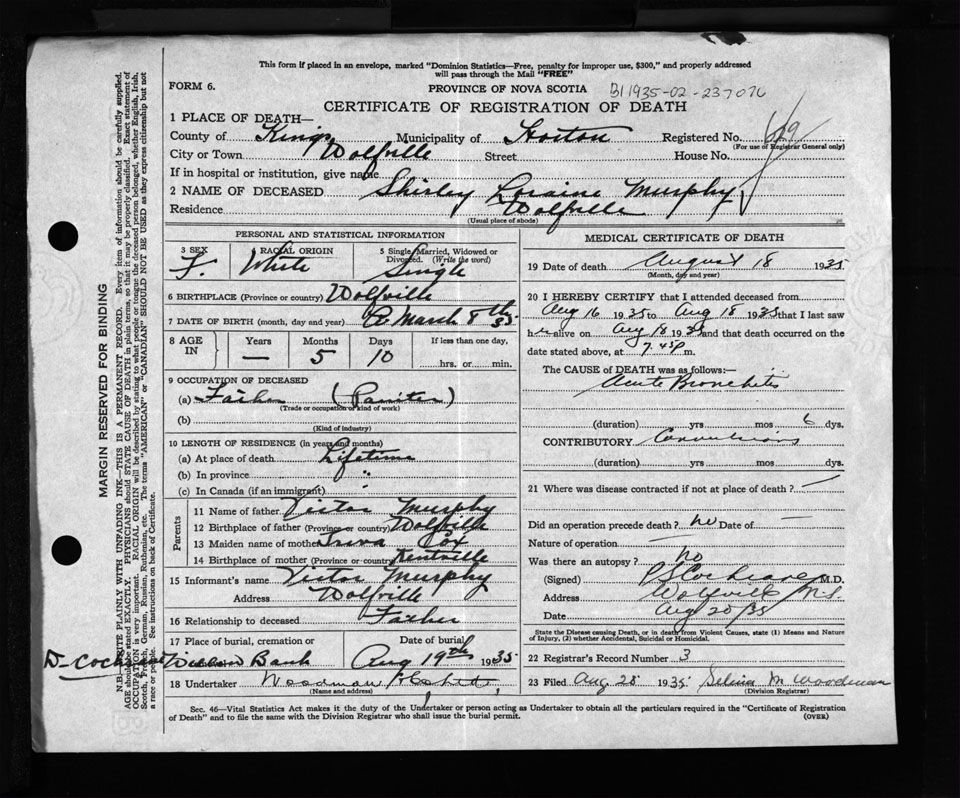 This form if placed in an envelope, marked "Dominion Statistics—Free, penalty for improper use, $300," and properly addressed
will pass through the Mail "FREE"
FORM 6.
PROVINCE OF NOVA SCOTIA B11935-02-237076
CERTIFICATE OF REGISTRATION OF DEATH
1 PLACE OF DEATH—
County of Kings Municipality of Horton Registered No. 609
(For use of Registrar General only)
City or Town Wolfville Street House No.
If in hospital or institution, give name
2 NAME OF DECEASED Shirley Loraine Murphy
Residence Wolfville
(Usual place of abode)
PERSONAL AND STATISTICAL INFORMATION
3 SEX F. RACIAL ORIGIN White 5 Single, Married, Widowed or Divorced. (Write the word) Single
6 BIRTHPLACE (Province or country) Wolfville
7 DATE OF BIRTH (month, day and year) March 8th 35
8 AGE IN Years — Months 5 Days 10 If less than one day, hrs. or min.
9 OCCUPATION OF DECEASED
(a) Father (Painter)
(Trade or occupation or kind of work)
(b)
(Kind of industry)
10 LENGTH OF RESIDENCE (in years and months)
(a) At place of death Lifetime
(b) In province "
(c) In Canada (if an immigrant) "
Parents
11 Name of father Victor Murphy
12 Birthplace of father (Province or country) Wolfville
13 Maiden name of mother Cox
14 Birthplace of mother (Province or country) Kentville
15 Informant's name Victor Murphy
Address Wolfville
16 Relationship to deceased Father
17 Place of burial, cremation or Willow Bank Date of burial Aug 19th 1935
D-Cochrane
18 Undertaker Woodman
(Name and address)
MEDICAL CERTIFICATE OF DEATH
19 Date of death August 18 1935
(Month, day and year)
20 I HEREBY CERTIFY that I attended deceased from
Aug 16 1935 to Aug 18 1935 that I last saw
her alive on Aug 18 1935 and that death occurred on the
date stated above, at 7.45 p m.
The CAUSE of DEATH was as follows:—
Acute Bronchitis
(duration) yrs mos 6 dys.
CONTRIBUTORY Convulsions
(duration) yrs mos dys.
21 Where was disease contracted if not at place of death? —
Did an operation precede death? no Date of —
Nature of operation —
Was there an autopsy? no
(Signed) Cochrane M.D.
Address Wolfville N.S.
Date Aug 20/35
State the Disease causing Death, or in death from Violent Causes, state (1) Means and Nature
of Injury, (2) whether Accidental, Suicidal or Homicidal.
22 Registrar's Record Number 3
23 Filed Aug 28 1935 Selina M Woodman
(Division Registrar)
Sec. 46—Vital Statistics Act makes it the duty of the Undertaker or person acting as Undertaker to obtain all the particulars required in the "Certificate of Registration
of Death" and to file the same with the Division Registrar who shall issue the burial permit. (OVER)
MARGIN RESERVED FOR BINDING
N.B.—WRITE PLAINLY WITH UNFADING INK—THIS IS A PERMANENT RECORD. Every item of information should be carefully supplied.
AGE should be stated EXACTLY. PHYSICIANS should STATE CAUSE OF DEATH in plain terms, so that it may be properly classified. Exact statement of
OCCUPATION is very important. RACIAL ORIGIN will be described by stating to what people or tongue the deceased person belonged, whether English, Irish,
Scotch, French, German, Russian, Ruthenian, etc. The terms "AMERICAN" or "CANADIAN" SHOULD NOT BE USED as they express citizenship but not
a race or people. See instructions on back of Certificate.